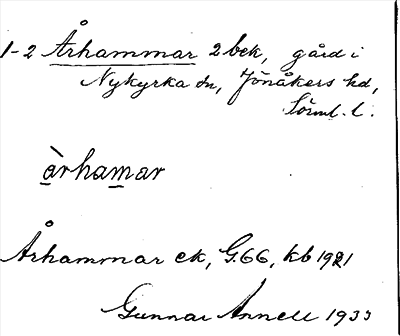 1-2 Århammar 2 bek, gård i
Nykyrka sn, Jönåkers hd,
Sörml. l.
å̲̀rham̲ar
Århammar ek, G.66, kb 1921
Gunnar Annell 1933